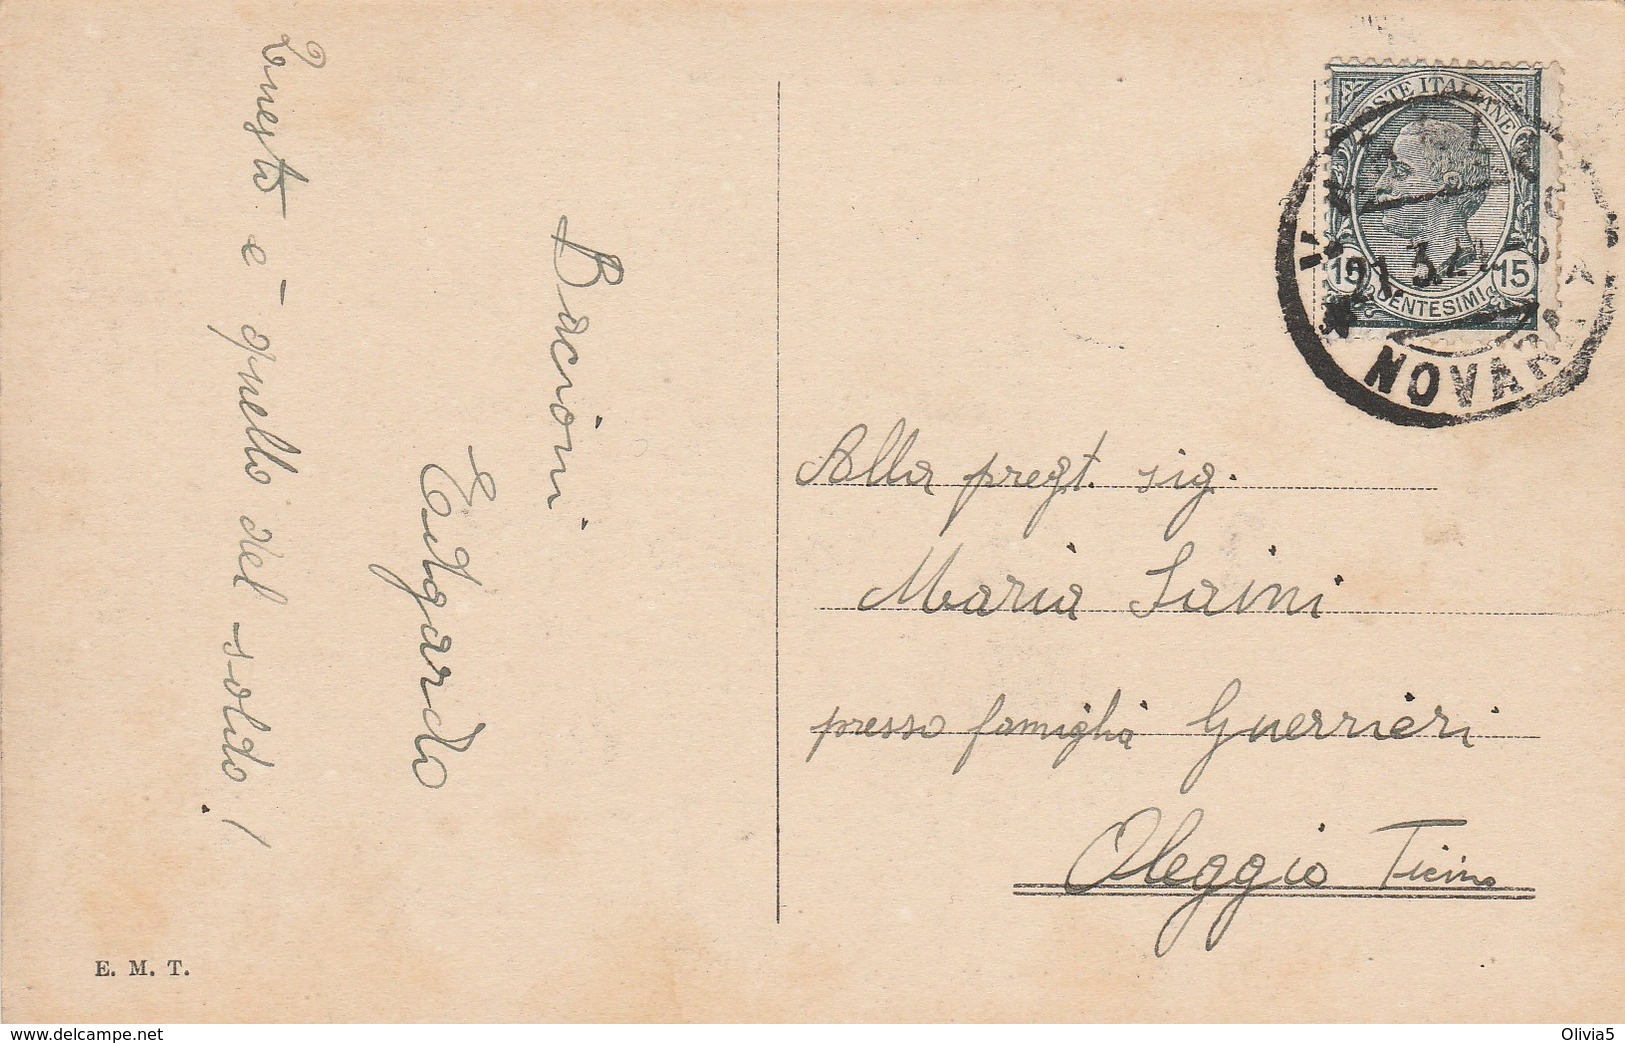 Bacioni
Edgardo
Questo è quello del soldo!
E. M. T.
POSTE ITALIANE
15 15
CENTESIMI
NOVARA
Alla pregt. sig.
Maria Saini
presso famiglia Guerrieri
Oleggio Ticino
delcampe.net
Olivia5